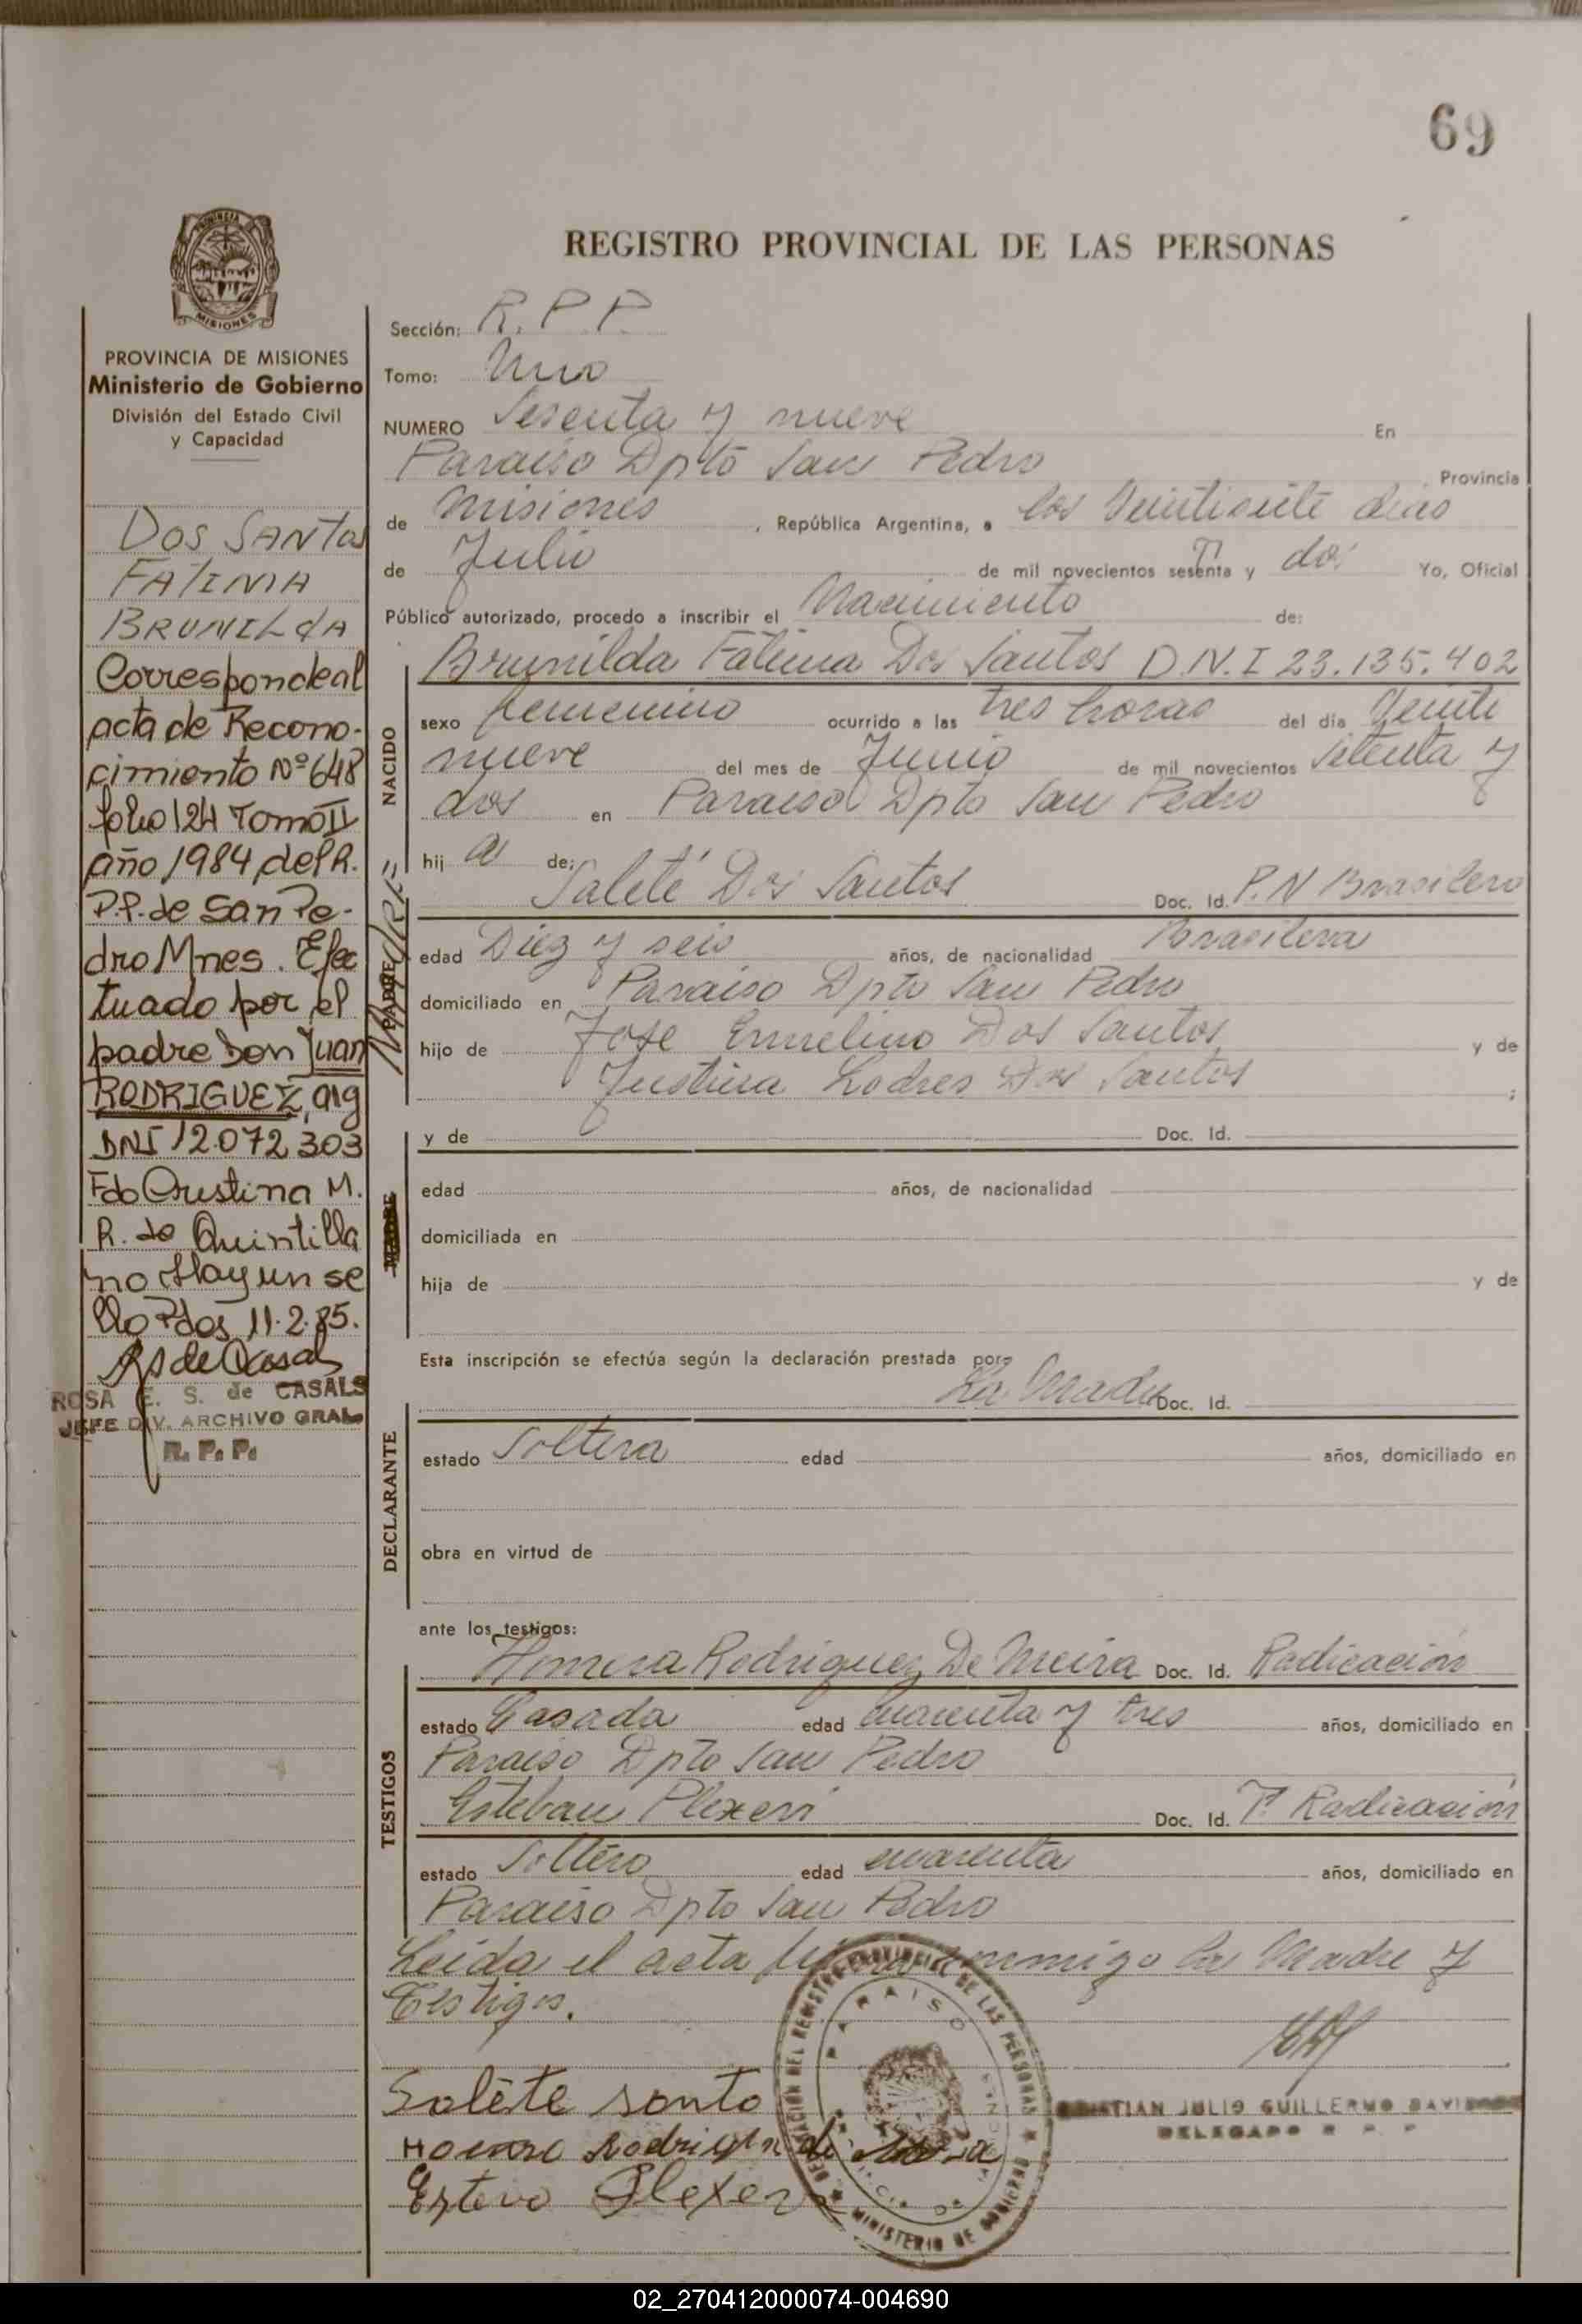 69
REGISTRO PROVINCIAL DE LAS PERSONAS
PROVINCIA
MISIONES
PROVINCIA DE MISIONES
Ministerio de Gobierno
División del Estado Civil
y Capacidad
DOS SANTOS
FATIMA
BRUNILdA
Corresponde al
acta de Recono-
cimiento Nº 648
folio 124 Tomo II
año 1984 del R.
P.P. de San Pe-
dro Mnes. Efec
tuado por el
padre Don Juan
RODRIGUEZ, arg
DNI 12.072.303
Fdo Cristina M.
R. de Quintilla
no Hay un se
llo Pdas 11.2.85.
RS de Casals
ROSA E. S. de CASALS
JEFE DIV. ARCHIVO GRAL.
R. P. P.
Sección: R. P. P.
Tomo: Uno
NUMERO Sesenta y nueve En
Paraiso Dpto San Pedro Provincia
de Misiones, República Argentina, a los Veintisiete dias
de Julio de mil novecientos sesenta y dos Yo, Oficial
Público autorizado, procedo a inscribir el Nacimiento de:
NACIDO
Brunilda Fátima Dos Santos D.N.I 23.135.402
sexo femenino ocurrido a las tres horas del día Veinti
nueve del mes de Junio de mil novecientos Setenta y
dos en Paraiso Dpto San Pedro
hij a de:
PADRE
MADRE
Saleté Dos Santos Doc. Id. P.N Brasilero
edad Diez y seis años, de nacionalidad Brasilera
domiciliado en Paraiso Dpto San Pedro
hijo de Jose Ermelino Dos Santos y de
Dos Santos ;
MADRE
y de Doc. Id.
edad años, de nacionalidad
domiciliada en
hija de y de
Esta inscripción se efectúa según la declaración prestada por:
DECLARANTE
La Madre Doc. Id.
estado Soltera edad años, domiciliado en
obra en virtud de
ante los testigos:
TESTIGOS
Rodriguez De Meira Doc. Id. Radicación
estado Casada edad cuarenta y tres años, domiciliado en
Paraiso Dpto San Pedro
Esteban Plexeri Doc. Id. Radicación
estado Soltero edad cuarenta años, domiciliado en
Paraiso Dpto San Pedro
Leida el acta conmigo la Madre y
testigos.
DELEGACIÓN DEL REGISTRO PROVINCIAL DE LAS PERSONAS
MINISTERIO DE GOBIERNO
PARAISO
PROVINCIA DE MISIONES
Salete santo
CRISTIAN JULIO GUILLERMO
DELEGADO R. P. P.
Rodrigu de
Estevo Plexer
02_270412000074-004690